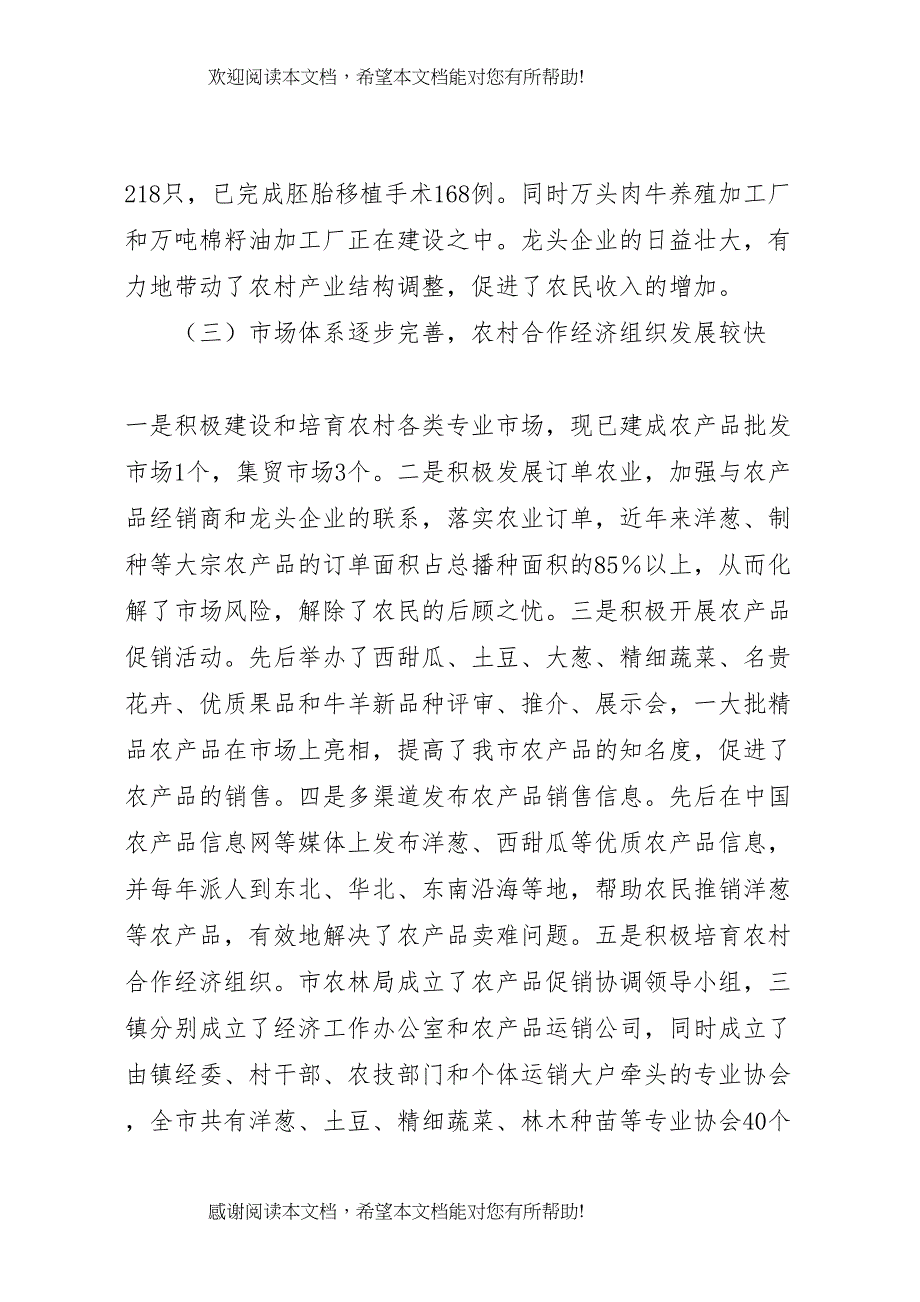 欢迎阅读本文档，希望本文档能对您有所帮助!
218只，已完成胚胎移植手术168例。同时万头肉牛养殖加工厂
和万吨棉籽油加工厂正在建设之中。龙头企业的日益壮大，有
力地带动了农村产业结构调整，促进了农民收入的增加。
（三）市场体系逐步完善，农村合作经济组织发展较快
一是积极建设和培育农村各类专业市场，现已建成农产品批发
市场1个，集贸市场3个。二是积极发展订单农业，加强与农产
品经销商和龙头企业的联系，落实农业订单，近年来洋葱、制
种等大宗农产品的订单面积占总播种面积的85％以上，从而化
解了市场风险，解除了农民的后顾之忧。三是积极开展农产品
促销活动。先后举办了西甜瓜、土豆、大葱、精细蔬菜、名贵
花卉、优质果品和牛羊新品种评审、推介、展示会，一大批精
品农产品在市场上亮相，提高了我市农产品的知名度，促进了
农产品的销售。四是多渠道发布农产品销售信息。先后在中国
农产品信息网等媒体上发布洋葱、西甜瓜等优质农产品信息，
并每年派人到东北、华北、东南沿海等地，帮助农民推销洋葱
等农产品，有效地解决了农产品卖难问题。五是积极培育农村
合作经济组织。市农林局成立了农产品促销协调领导小组，三
镇分别成立了经济工作办公室和农产品运销公司，同时成立了
由镇经委、村干部、农技部门和个体运销大户牵头的专业协会
，全市共有洋葱、土豆、精细蔬菜、林木种苗等专业协会40个
感谢阅读本文档，希望本文档能对您有所帮助!